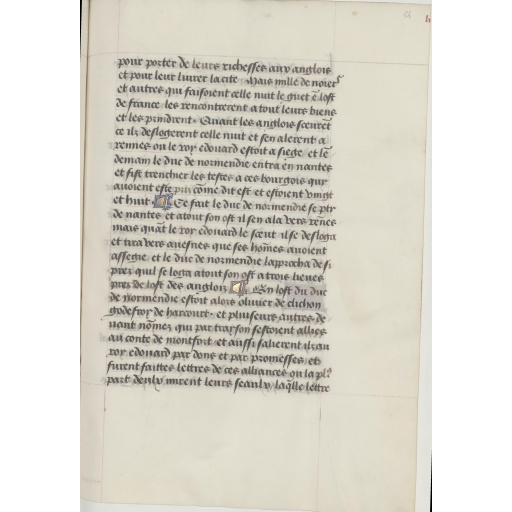 pour porter de leurs richesses aux anglois
et pour leur livrer la cite. Mais mille de noier
et autres qui faisoient celle nuit le guet e lost
de france les rencontrerent a tout leurs biens
et les prindrent. Quant les anglois sceuret
ce ilz deslogerent celle nuit et sen alerent a
rennes ou le roy edouard estoit a siege et le
demain le duc de normendie entra en nantes
et fist trencher les testes a ces bourgois qui
avoient este pris come dit est et estoient vingt
et huit Ce fait le duc de normendie se ptr
de nantes et atout son ost il sen ala vers renes
mais quat le roy edouard le sceut il se desloga
et tira vers avesnes que ses homes avoient
assegie et le duc de normendie laprocha de si
pres quil se loga atout son ost a trois lieues
pres de lost des anglois En lost du duc
de normendie estoit alors olivier de clichon
godefroy de harcourt et pluiseurs autres de
vant nomez qui par trayson sestoient allies
au conte de montfort et aussi salierent ilz au
roy edouard par dons et par promesses et
furent faittes lettres de ces alliances ou la pl9
part deulx mirent leurs seaulx laqlle lettre